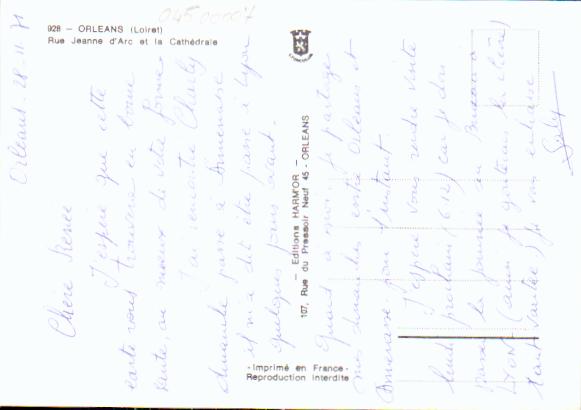 0450000
928 — ORLEANS (Loiret)
Rue Jeanne d'Arc et la Cathédrale
Orléans - 28-11-71
Chère Renée
J'espère que cette
carte vous trouvera en bonne
santé, au mieux de votre forme.
J'ai rencontré Charly
dimanche passé à
il m'a dit être passé à Lyon
quelques jours avant.
Quant à moi, je partage
mes dimanches entre Orléans et
pour l'instant
J'espère vous rendre visite
lundi prochain (6/12) car je dois
passer la journée au
LYON
je vous embrasse
— Editions HARM'OR —
107, Rue du Pressoir Neuf 45 - ORLEANS
- Imprimé en France -
Reproduction Interdite